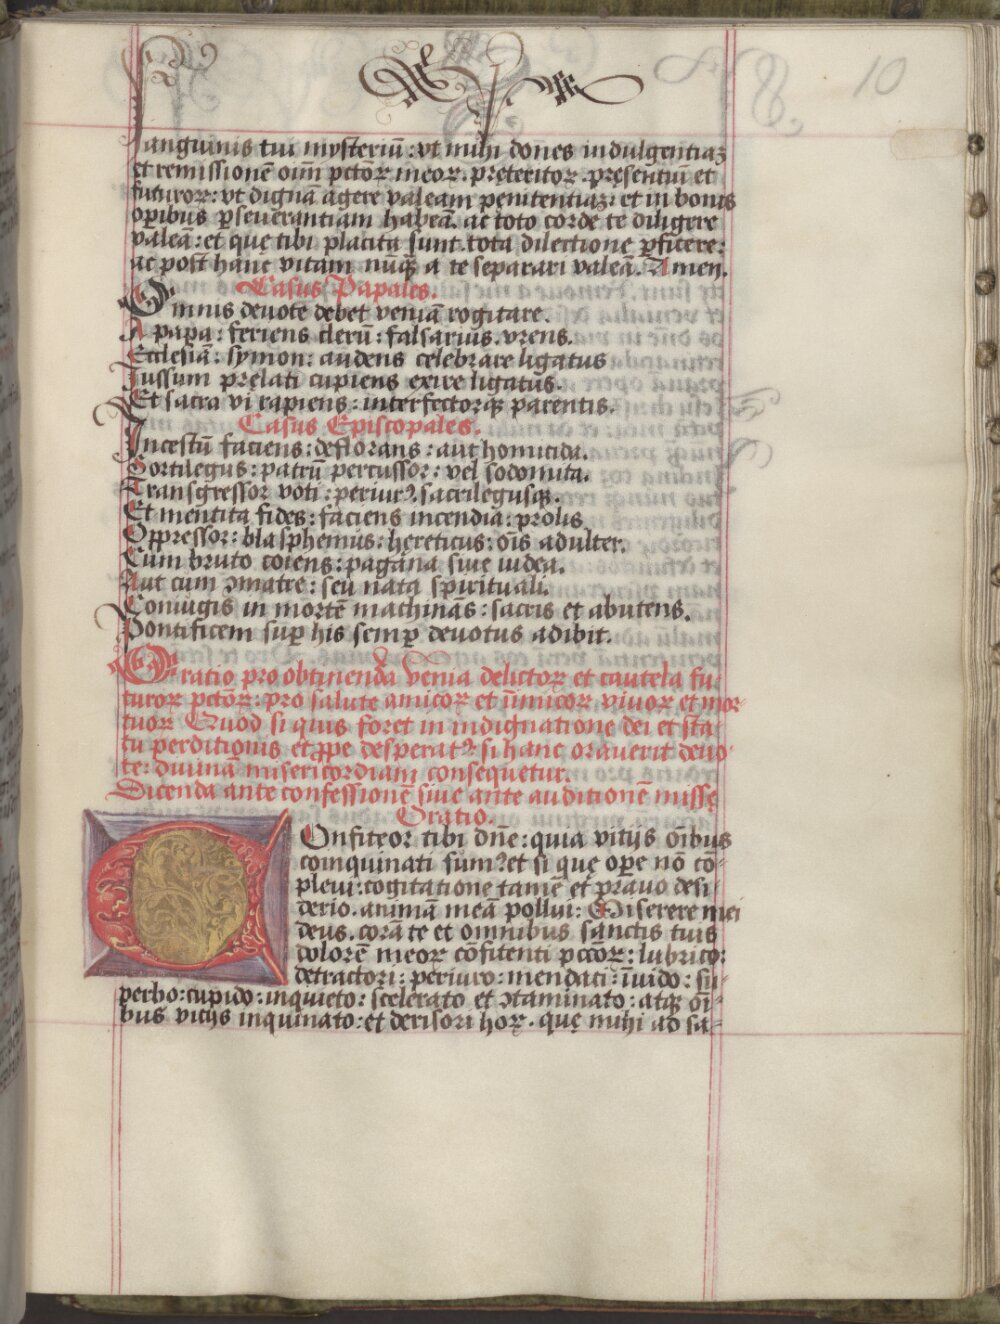 10
sanguinis tui mysteriū : vt mihi dones indulgentiaꝫ
et remissionē oīm pctōꝝ meoꝝ. pręteritoꝝ. pręsentiū et
futuroꝝ: vt dignā agere valeam penitentiaꝫ: et in bonis
oꝑibus ꝑseverantiam habeā. ac toto corde te diligere
valeā: et quę tibi placita sunt. tota dilectione ꝑficere:
ac post hanc vitam nūqꝫ a te separari valeā. Amen.
Casus Papales.
Omnis devote debet veniā rogitare.
A papa : feriens clerū : falsarius. vrens.
Ecclesiā : symon : audens celebrare ligatus
Jussum prelati cupiens exire ligatus.
Et sacra vi rapiens : interfectorqꝫ parentis.
Casus Episcopales.
Incestū faciens : deflorans : aut homicida.
Sortilegus : patrū percussor : vel sodomita.
Transgressor voti : periurꝰ. sacrilegusqꝫ.
Et mentita fides : faciens incendia : prolis.
Oppressor : blasphemus : hereticus : oīs adulter.
Cum bruto coiens : pagana sive iudea.
Aut cum ꝯmatre : seu nata spirituali.
Coniugis in mortē machinās : sacris et abutens.
Pontificem suꝑ his semꝑ devotus adibit.
Oratio pro obtinenda venia delictoꝝ et cautela fu-
turoꝝ pctōꝝ : pro salute amicoꝝ et inīmicoꝝ vivoꝝ et mor-
tuoꝝ Quod si quis foret in indignatione dei et sta-
tu perditionis et ꝓpe desperatꝰ: si hanc oraverit devo-
te: divinā misericordiam consequetur.
Dicenda ante confessionē sive ante auditionē missę
Oratio.
Confiteor tibi dn̄e : quia vitijs oībus
coinquinati sumꝰ et si quę oꝑe nō cō-
plevi : cogitatione tamē et pravo desi-
derio. animā meā pollui : Miserere mei
deus. corā te et omnibus sanctis tuis
dolorē meoꝝ cōfitenti pctōꝝ : lubrico:
detractori : periuro : mendaci : īvido : su-
perbo : cupido : inquieto : scelerato et ꝯtaminato : atqꝫ oī-
bus vitijs inquinato : et derisori hoꝝ. quę mihi ad sa-